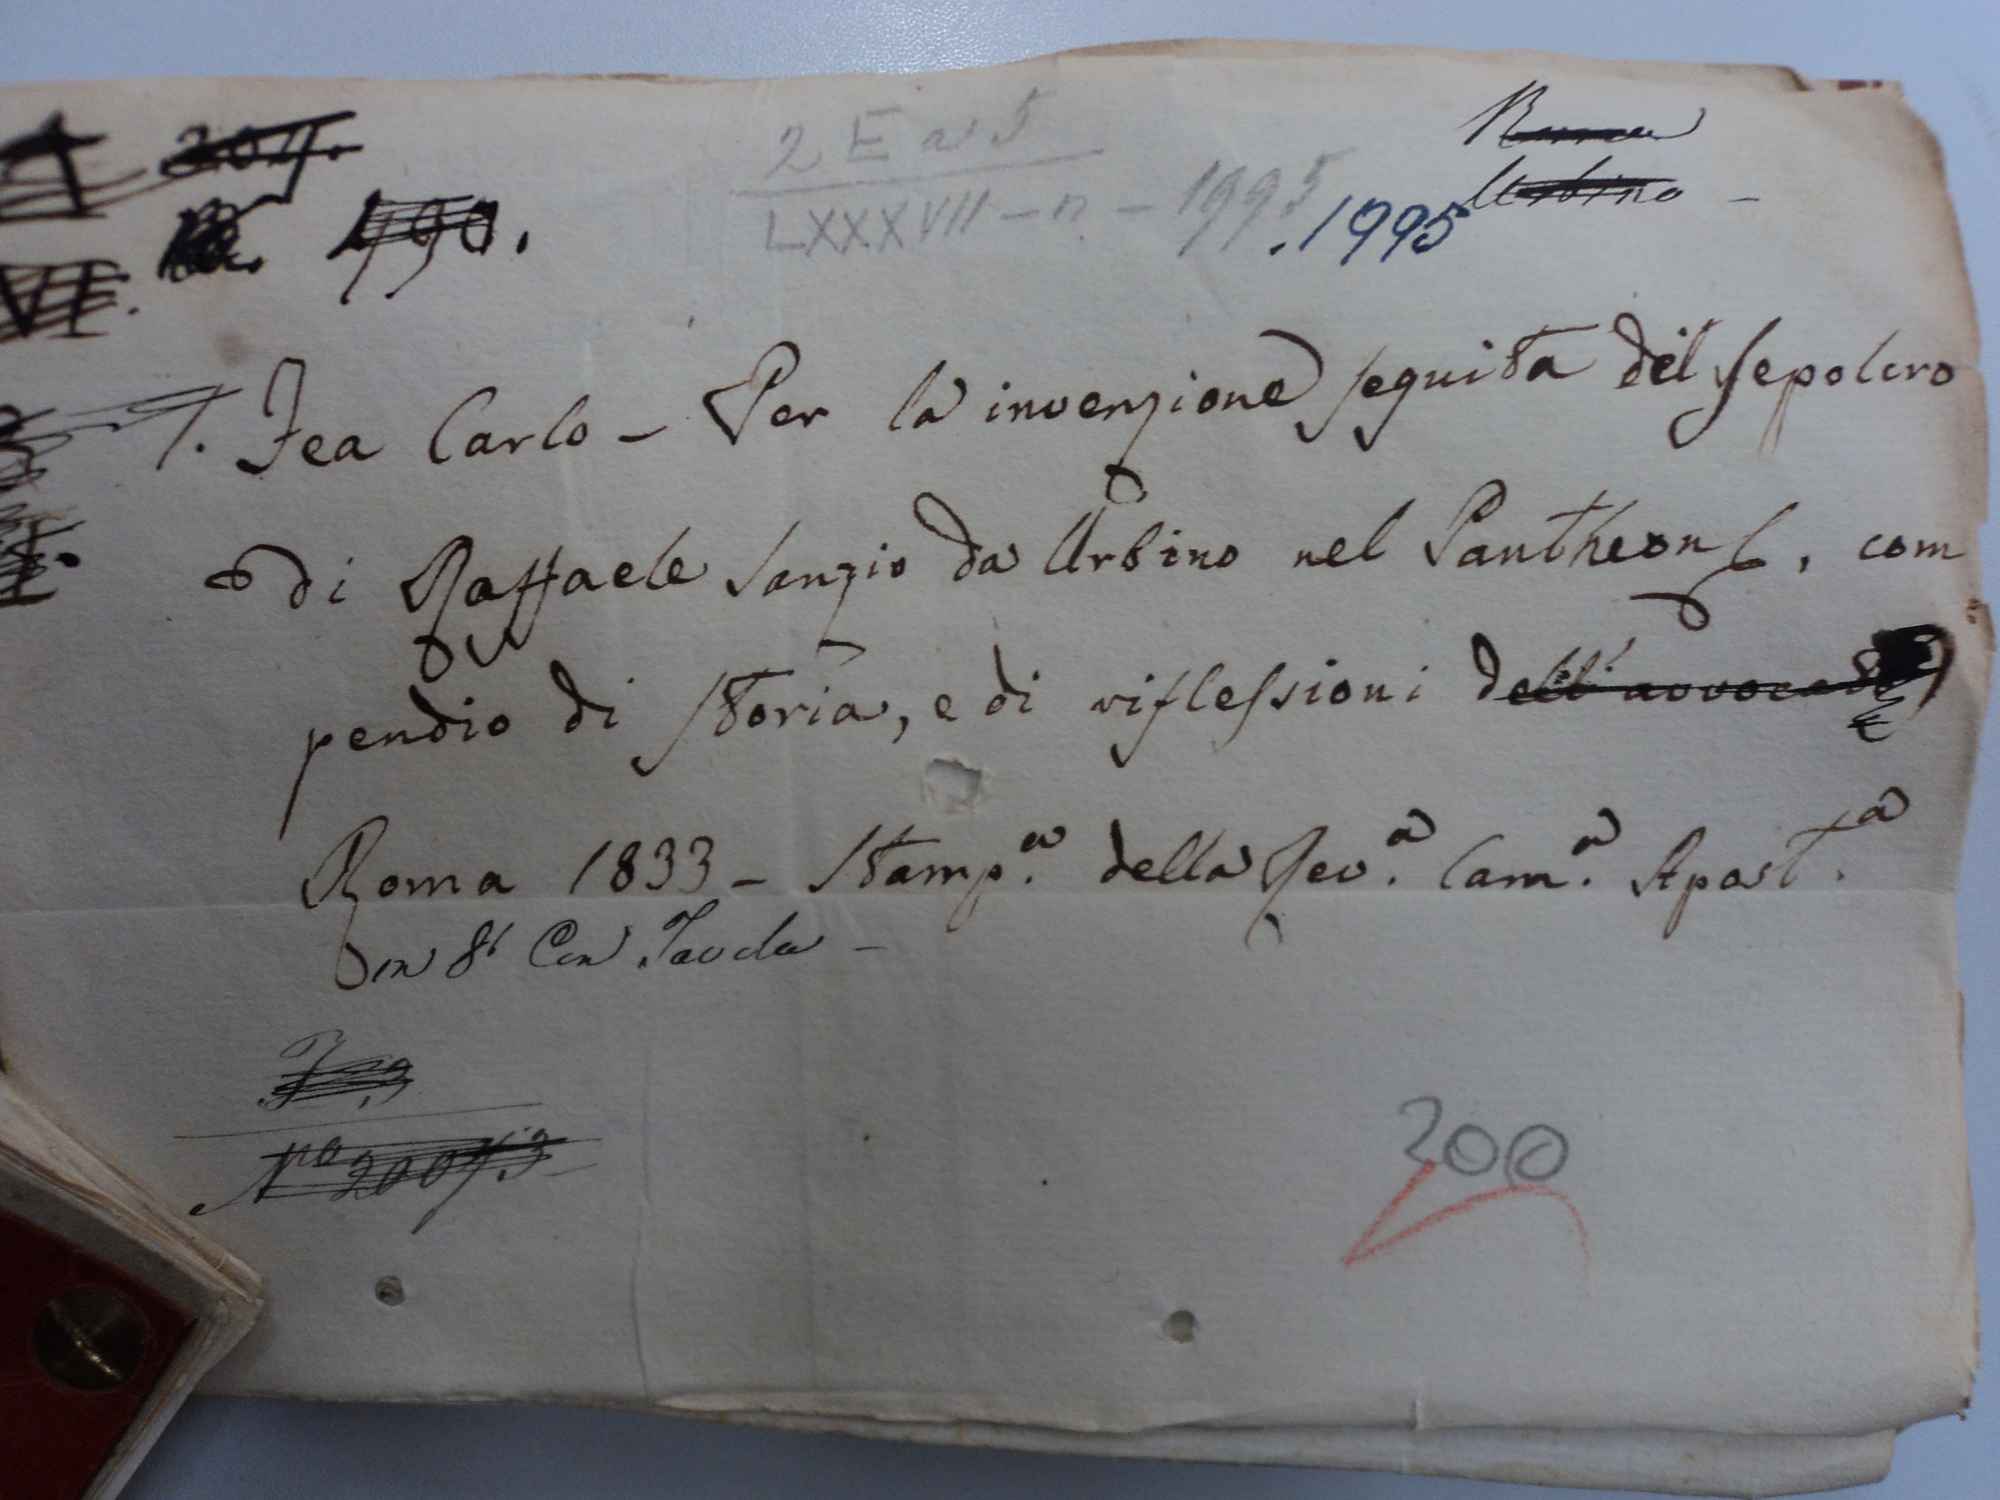 204.
VI. 490.
2 E a 5
LXXXVII - n. - 1995
.1995
Roma
Urbino -
1. Fea Carlo - Per la invenzione seguita del sepolcro
di Raffaele Sanzio da Urbino nel Pantheon, com
pendio di storia, e di riflessioni dell'avvocato
Roma 1833 - Stamp.a della Rev.a Cam.a Apost.a
in 8° Con Tavola -
Fea
200